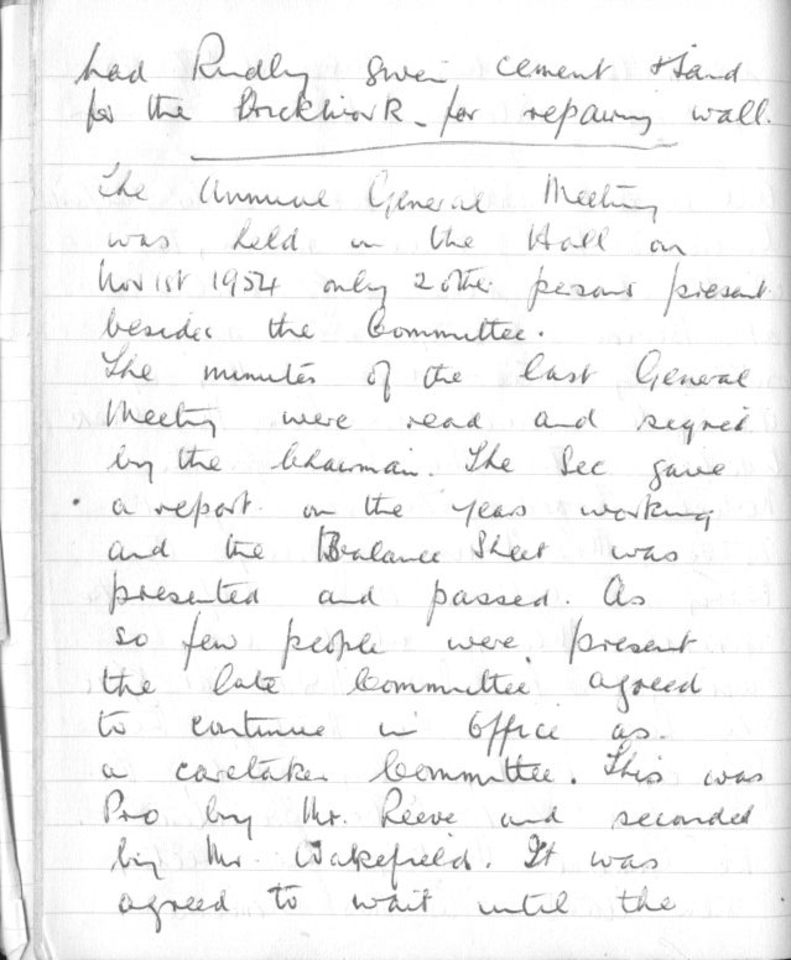 had Kindly given cement & Sand
for the Brickwork - for repairing wall.
The Annual General Meeting
was held in the Hall on
Nov 1st 1954 only 2 other persons present
besides the Committee.
The minutes of the last General
Meeting were read and signed
by the Chairman. The Sec gave
a report on the years working
and the Balance Sheet was
presented and passed. As
so few people were present
the late Committee agreed
to continue in Office as
a caretaker Committee. This was
Pro by Mr. Reeve and seconded
by Mr. Wakefield. It was
agreed to wait until the